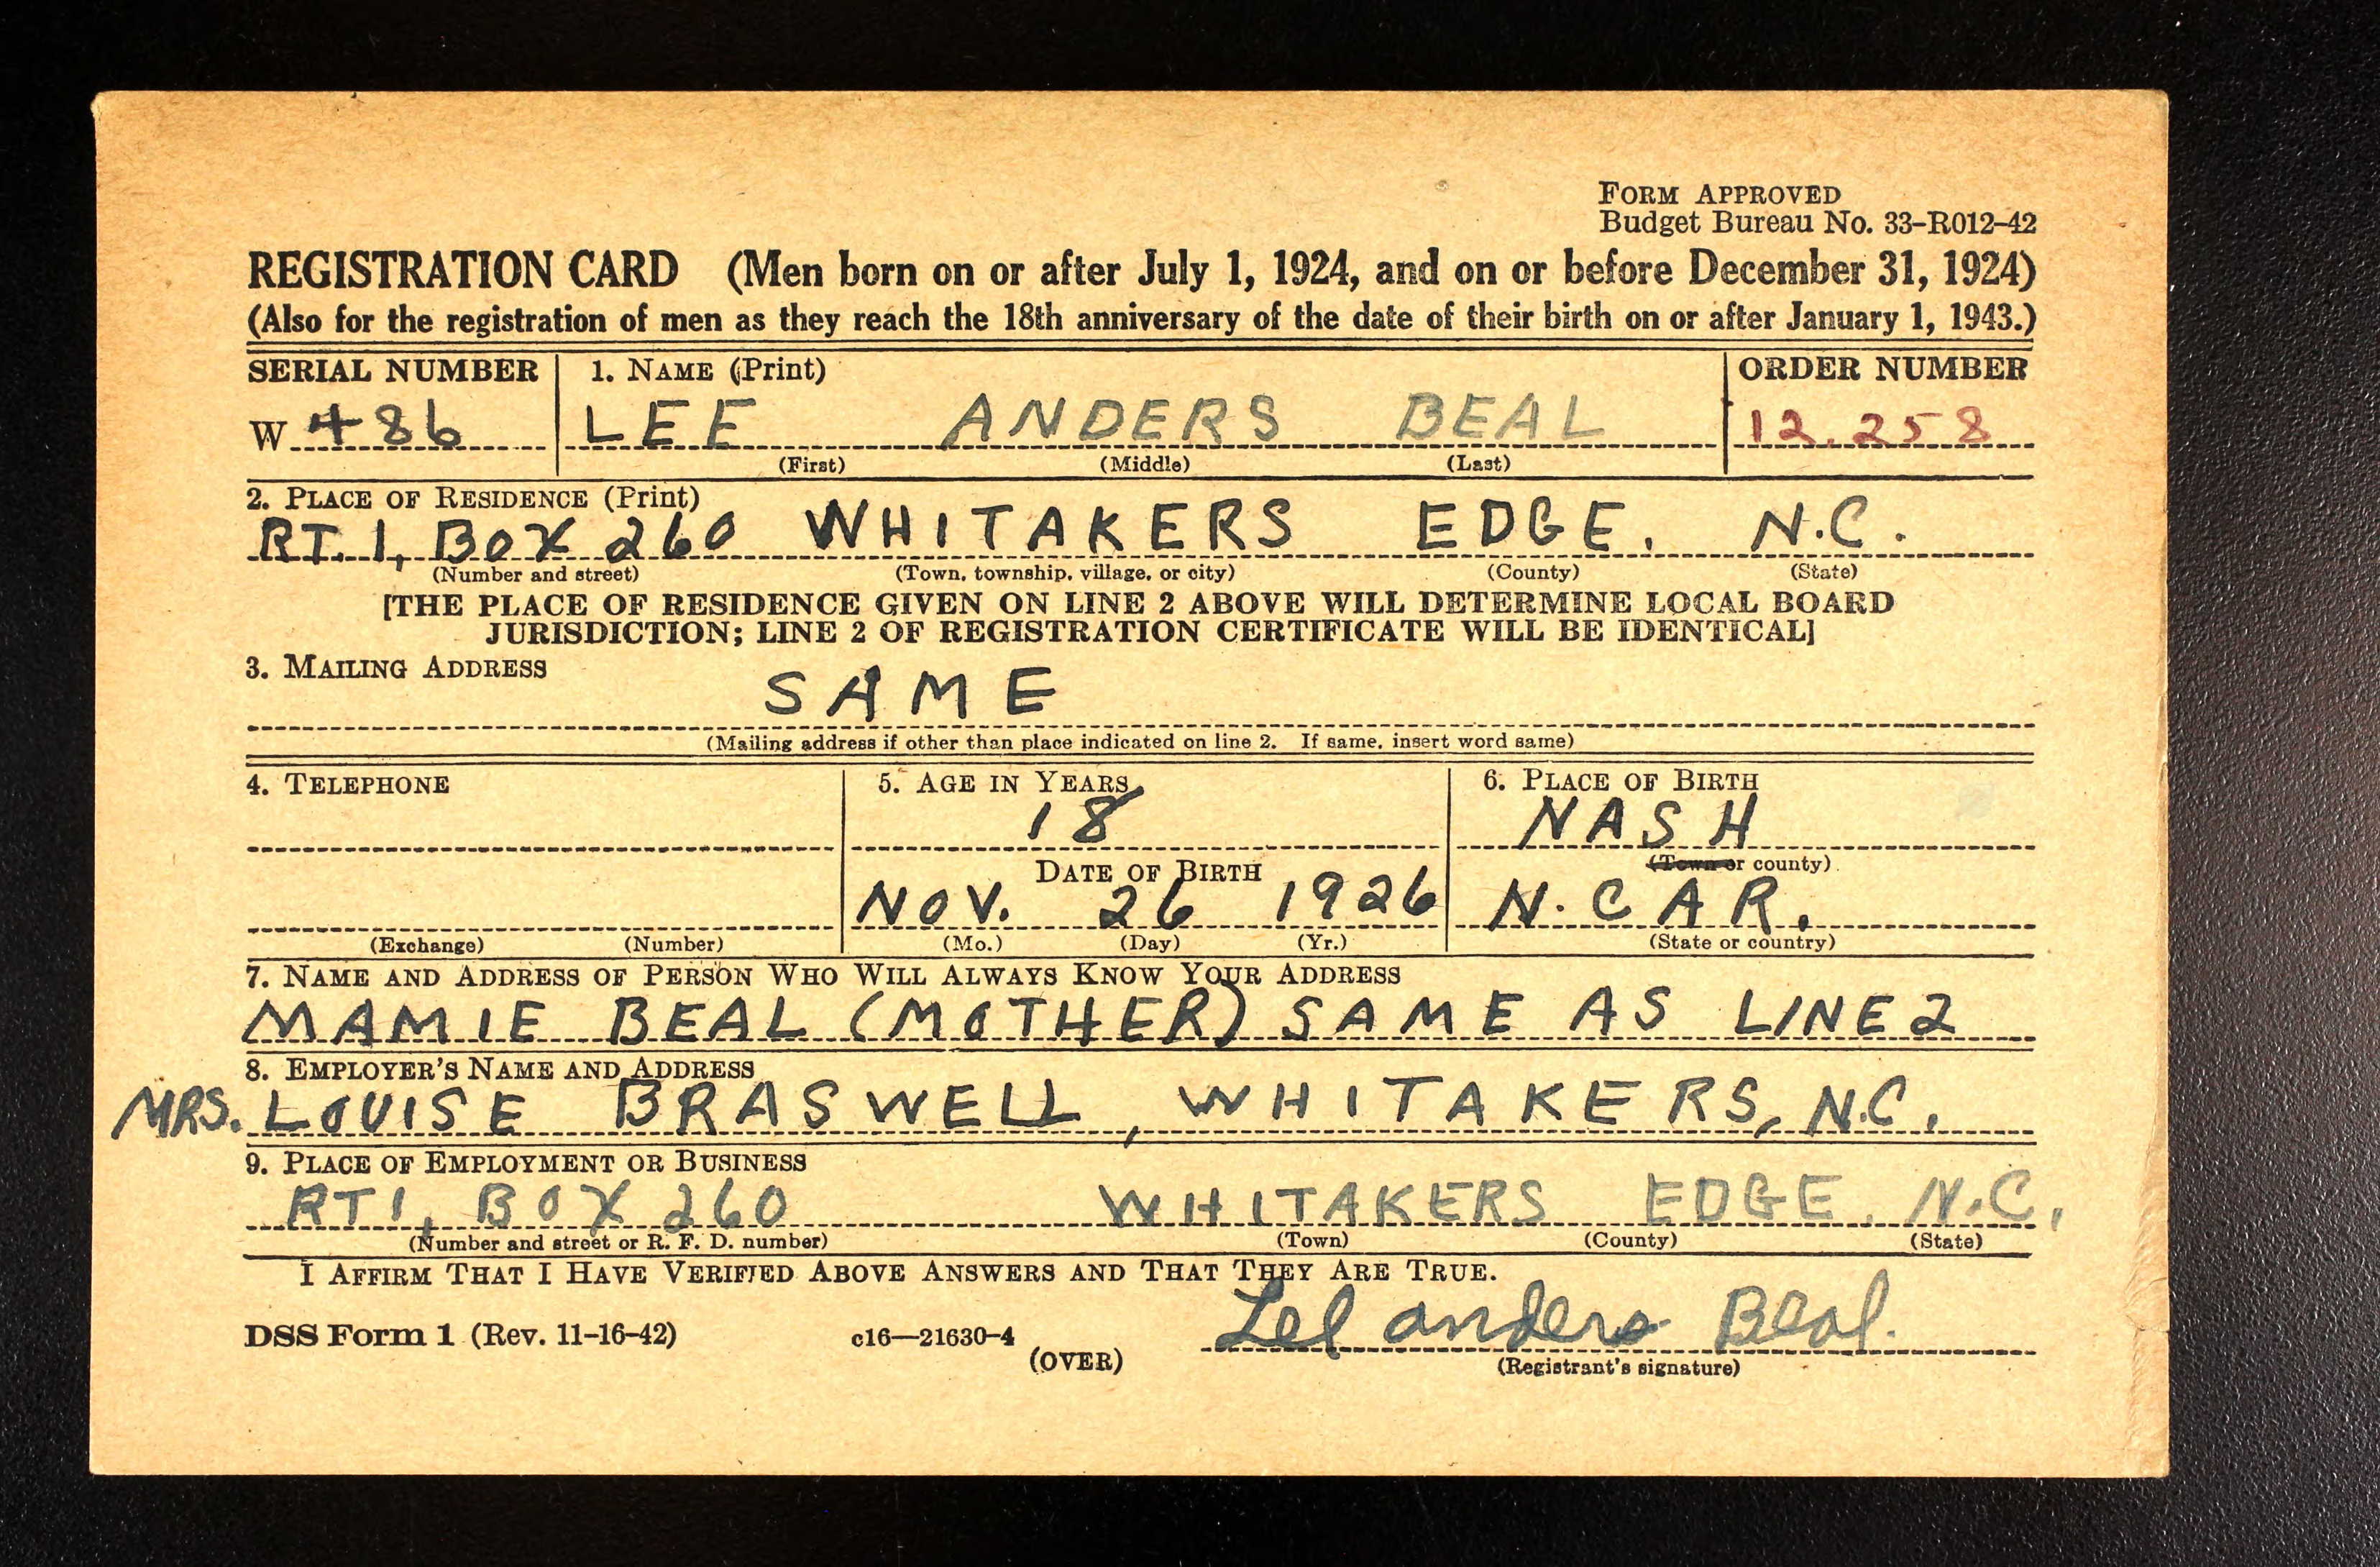 FORM APPROVED
Budget Bureau No. 33-R012-42
REGISTRATION CARD (Men born on or after July 1, 1924, and on or before December 31, 1924)
(Also for the registration of men as they reach the 18th anniversary of the date of their birth on or after January 1, 1943.)
SERIAL NUMBER 1. NAME (Print) ORDER NUMBER
W 486 LEE ANDERS BEAL 12.258
(First) (Middle) (Last)
2. PLACE OF RESIDENCE (Print)
RT. 1, BOX 260 WHITAKERS EDGE. N.C.
(Number and street) (Town, township, village, or city) (County) (State)
[THE PLACE OF RESIDENCE GIVEN ON LINE 2 ABOVE WILL DETERMINE LOCAL BOARD
JURISDICTION; LINE 2 OF REGISTRATION CERTIFICATE WILL BE IDENTICAL]
3. MAILING ADDRESS
SAME
(Mailing address if other than place indicated on line 2. If same, insert word same)
4. TELEPHONE 5. AGE IN YEARS 6. PLACE OF BIRTH
18 NASH
DATE OF BIRTH (Town or county)
NOV. 26 1926 N. CAR.
(Exchange) (Number) (Mo.) (Day) (Yr.) (State or country)
7. NAME AND ADDRESS OF PERSON WHO WILL ALWAYS KNOW YOUR ADDRESS
MAMIE BEAL (MOTHER) SAME AS LINE 2
8. EMPLOYER'S NAME AND ADDRESS
MRS. LOUISE BRASWELL, WHITAKERS, N.C.
9. PLACE OF EMPLOYMENT OR BUSINESS
RT 1, BOX 260 WHITAKERS EDGE. N.C.
(Number and street or R. F. D. number) (Town) (County) (State)
I AFFIRM THAT I HAVE VERIFIED ABOVE ANSWERS AND THAT THEY ARE TRUE.
Lee Anders Beal.
DSS Form 1 (Rev. 11-16-42) c16—21630-4
(OVER) (Registrant's signature)